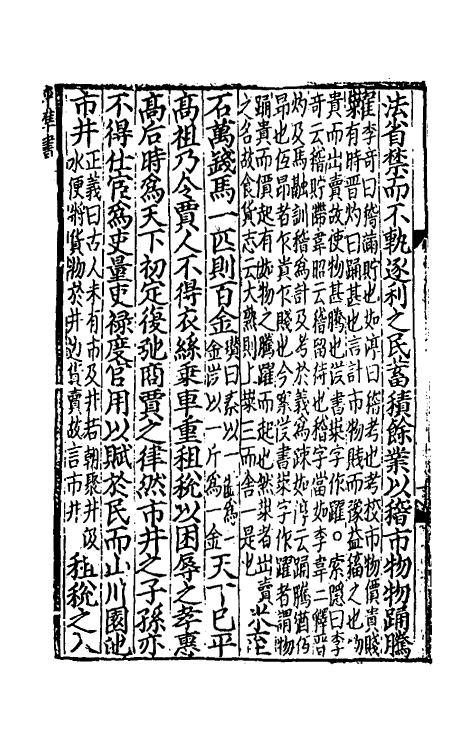 法省禁而不軌逐利之民畜積餘業以稽市物物踊騰
糶李奇曰稽滿貯也如淳曰稽考也考校市物價貴賤
有時晉灼曰踊甚也言計市物賤而豫益稸之也物
貴而出賣故使物甚騰也漢書柒字作躍。索隱曰李
奇云稽貯滯韋昭云稽留待也稽字當如李韋二釋晋
灼及馬融訓稽爲計及考於義爲疎如淳云踊騰猶伍
昻也伍昻者乍貴乍賤也今案漢書柒字作躍者謂物
踊貴而價起有如物之騰躍而起也然柒者出賣
之名故食貨志云大熟則上柒三而舎一是也
米至
石萬錢馬一匹則百金
秦以一
金漢以一斤爲一金
天下已平
高祖乃令賈人不得衣絲乘車重租稅以困辱之孝惠
高后時爲天下初定復弛商賈之律然市井之子孫亦
不得仕宦爲吏量吏禄度官用以賦於民而山川園池
市井
正義曰古人未有市及井若朝聚井汲
水便將貨物於井边貨賣故言市井
租稅之入